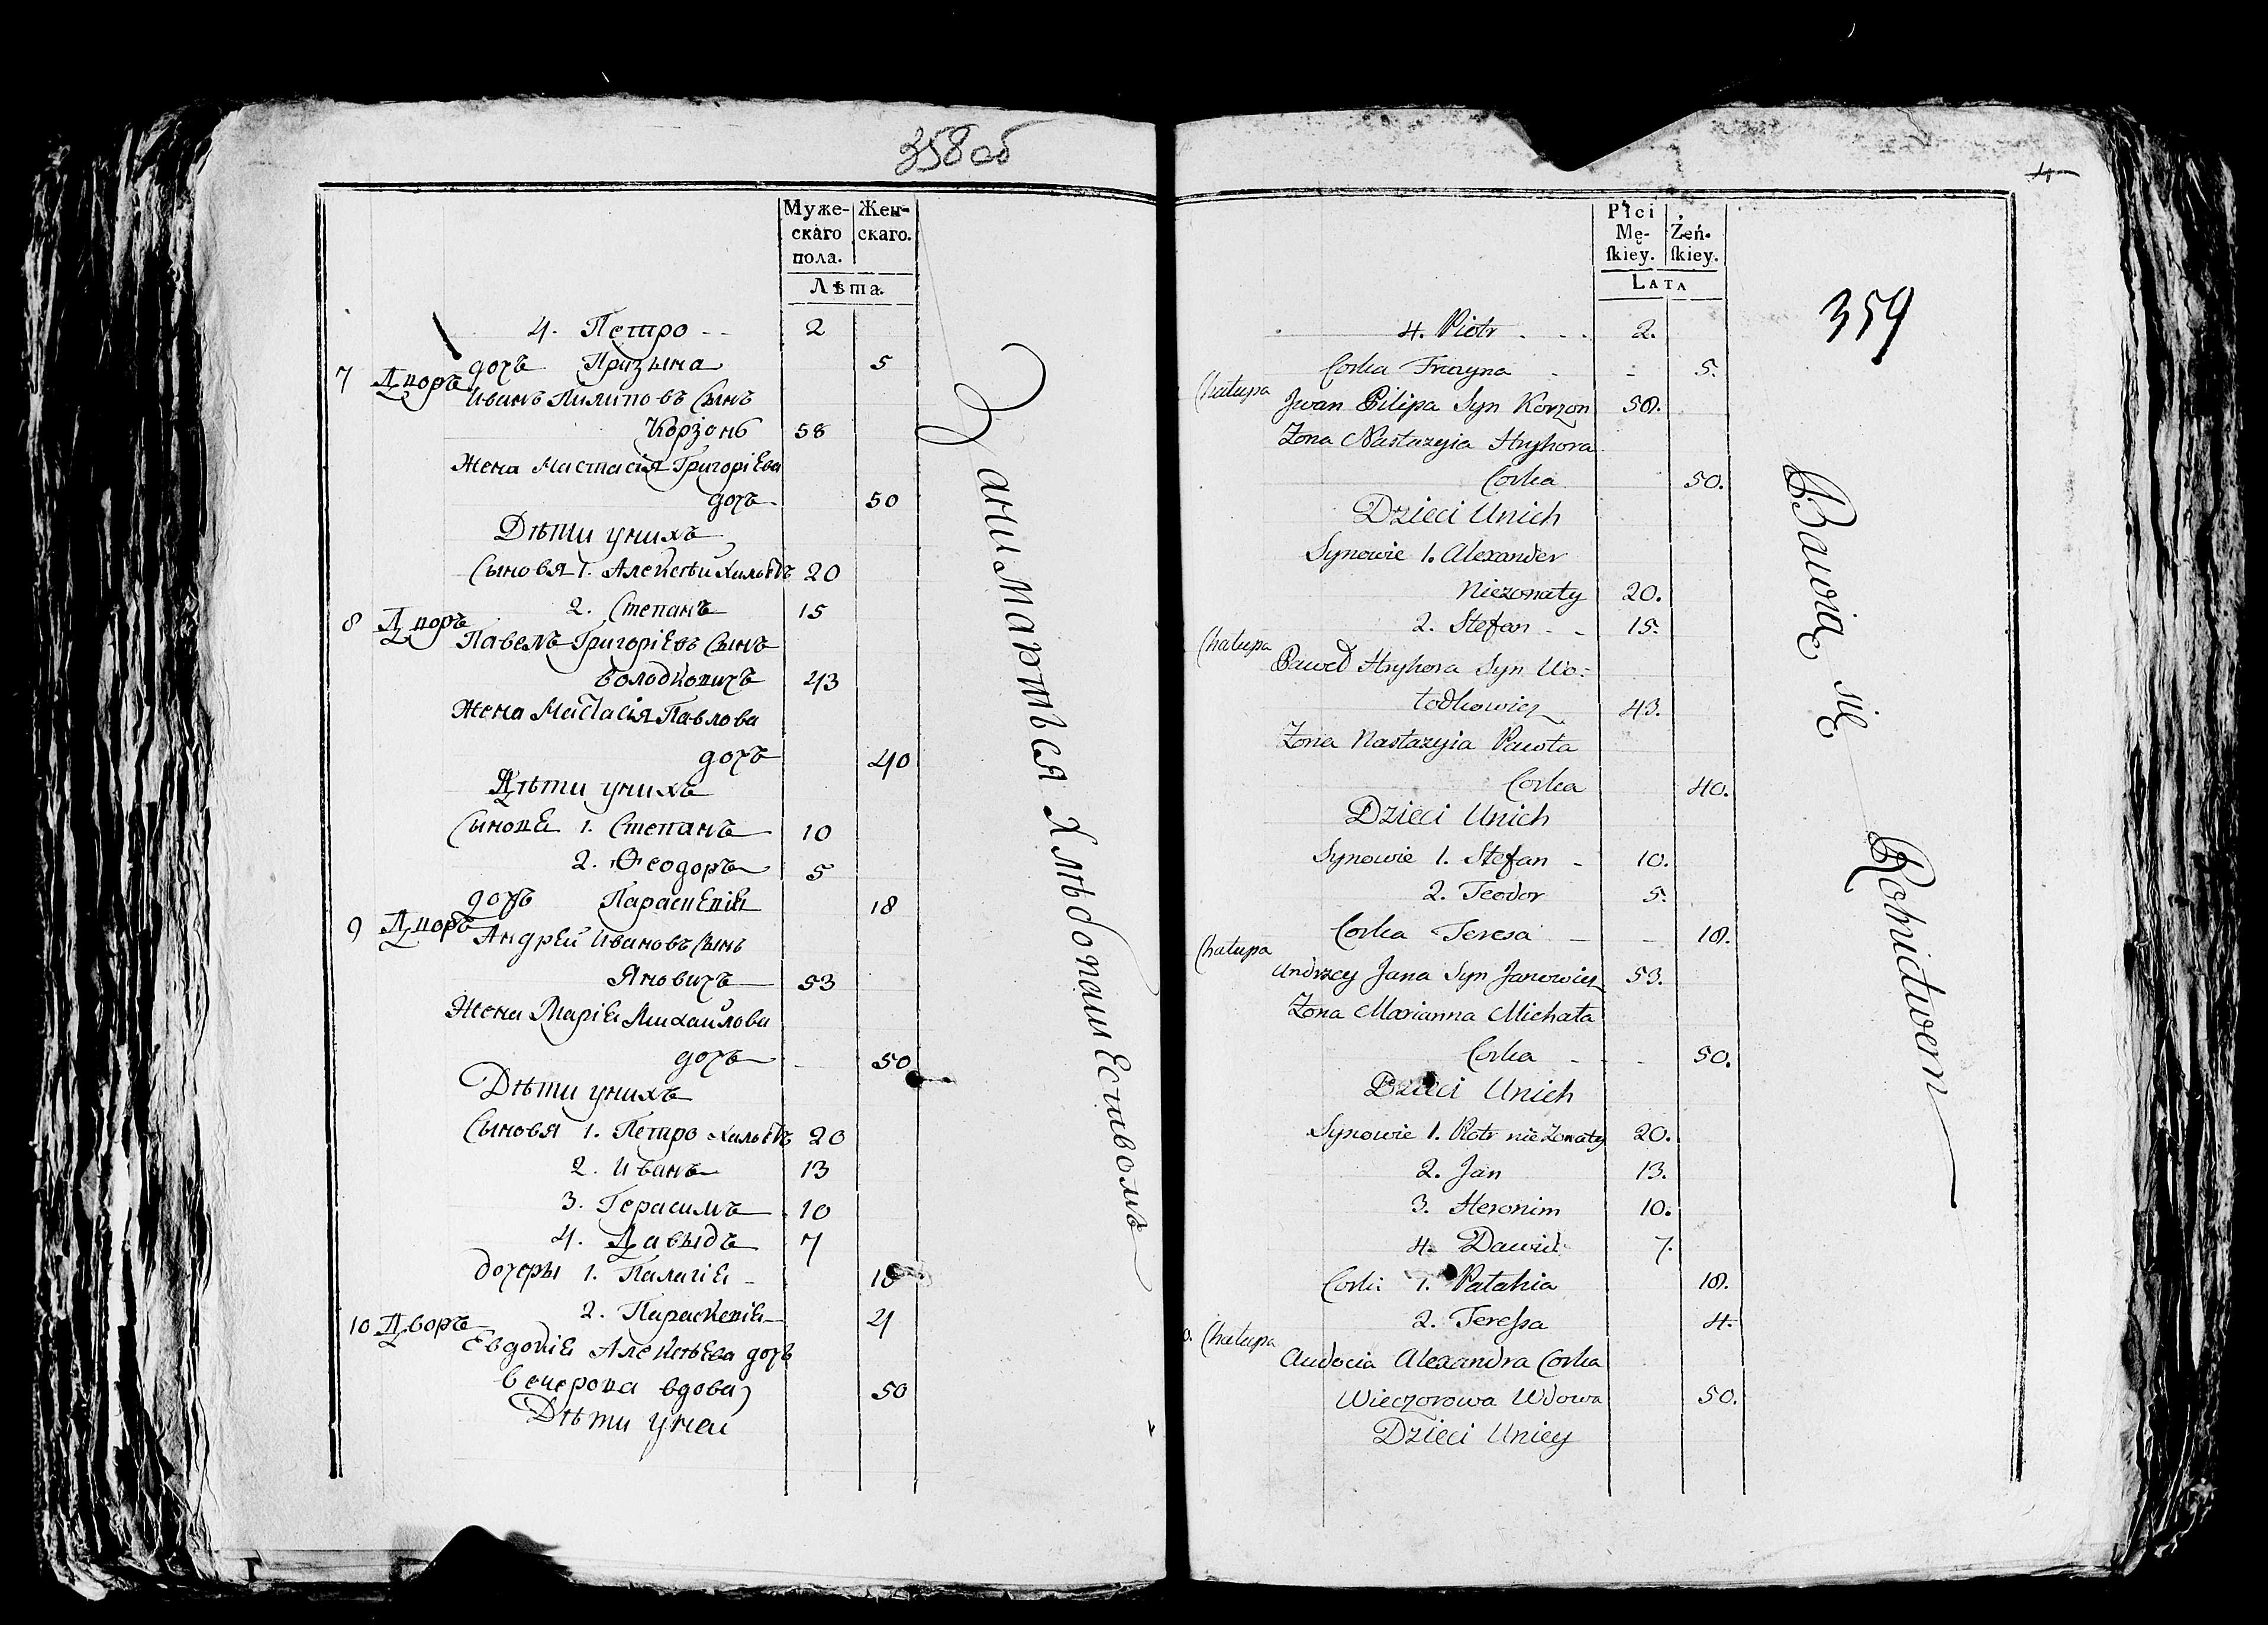 358об
Муже- Жен-
скаго скаго.
пола.
Лѣта.
4. Петро -- 2
дочь Призына 5
7 Дворъ Иванъ Пилиповъ Сынъ
Корзонь 58
Жена Настасія Григоріева
дочь 50
Дѣти унихъ
Сыновя 1. Алексѣй холостъ 20
2. Степанъ 15
8 Дворъ Павелъ Григоріевъ Сынъ
Володковичъ 43
Жена Настасія Павлова
дочь 40
Дѣти унихъ
Сынове 1. Степанъ 10
2. Ѳеодоръ 5
дочь Параскевія 18
9 Дворъ Андрей Ивановъ Сынъ
Яновичъ 53
Жена Марія Михайлова
дочь 50
Дѣти унихъ
Сыновя 1. Петро холостъ 20
2. Иванъ 13
3. Герасимъ 10
4. Давыдъ 7
дочеры 1. Палагія 18
2. Параскевія 4
10 Дворъ Евдокія Алексѣева дочь
Вечерова вдова 50
Дѣти унеи
Занимаются Хлѣбопашествомъ
359
Płci
Mę- Żeń-
ſkiey. ſkiey.
LATA
4. Piotr 2.
Corka 5.
Chałupa Jwan Pilipa Syn Korzon 58.
Żona Nastazyia Hryhora
Corka 50.
Dzieci Unich
Synowie 1. Alexander
Niezonaty 20.
2. Stefan 15.
Chałupa Paweł Hryhora Syn Wo:
łodkowicz 43.
Żona Nastazyia Pawła
Corka 40.
Dzieci Unich
Synowie 1. Stefan 10.
2. Teodor 5.
Corka Teresa 18.
Chałupa Andrzey Jana Syn Janowicz 53.
Żona Marianna Michała
Corka 50.
Dzieci Unich
Synowie 1. Piotr nie Zonaty 20.
2. Jan 13.
3. Heronim 10.
4. Dawid 7.
Corki 1. Pałahia 18.
2. Tereſsa 4.
0. Chałupa Audocia Alexandra Corka
Wieczorowa Wdowa 50.
Dzieci Uniey
Bawią się Rolnictwem